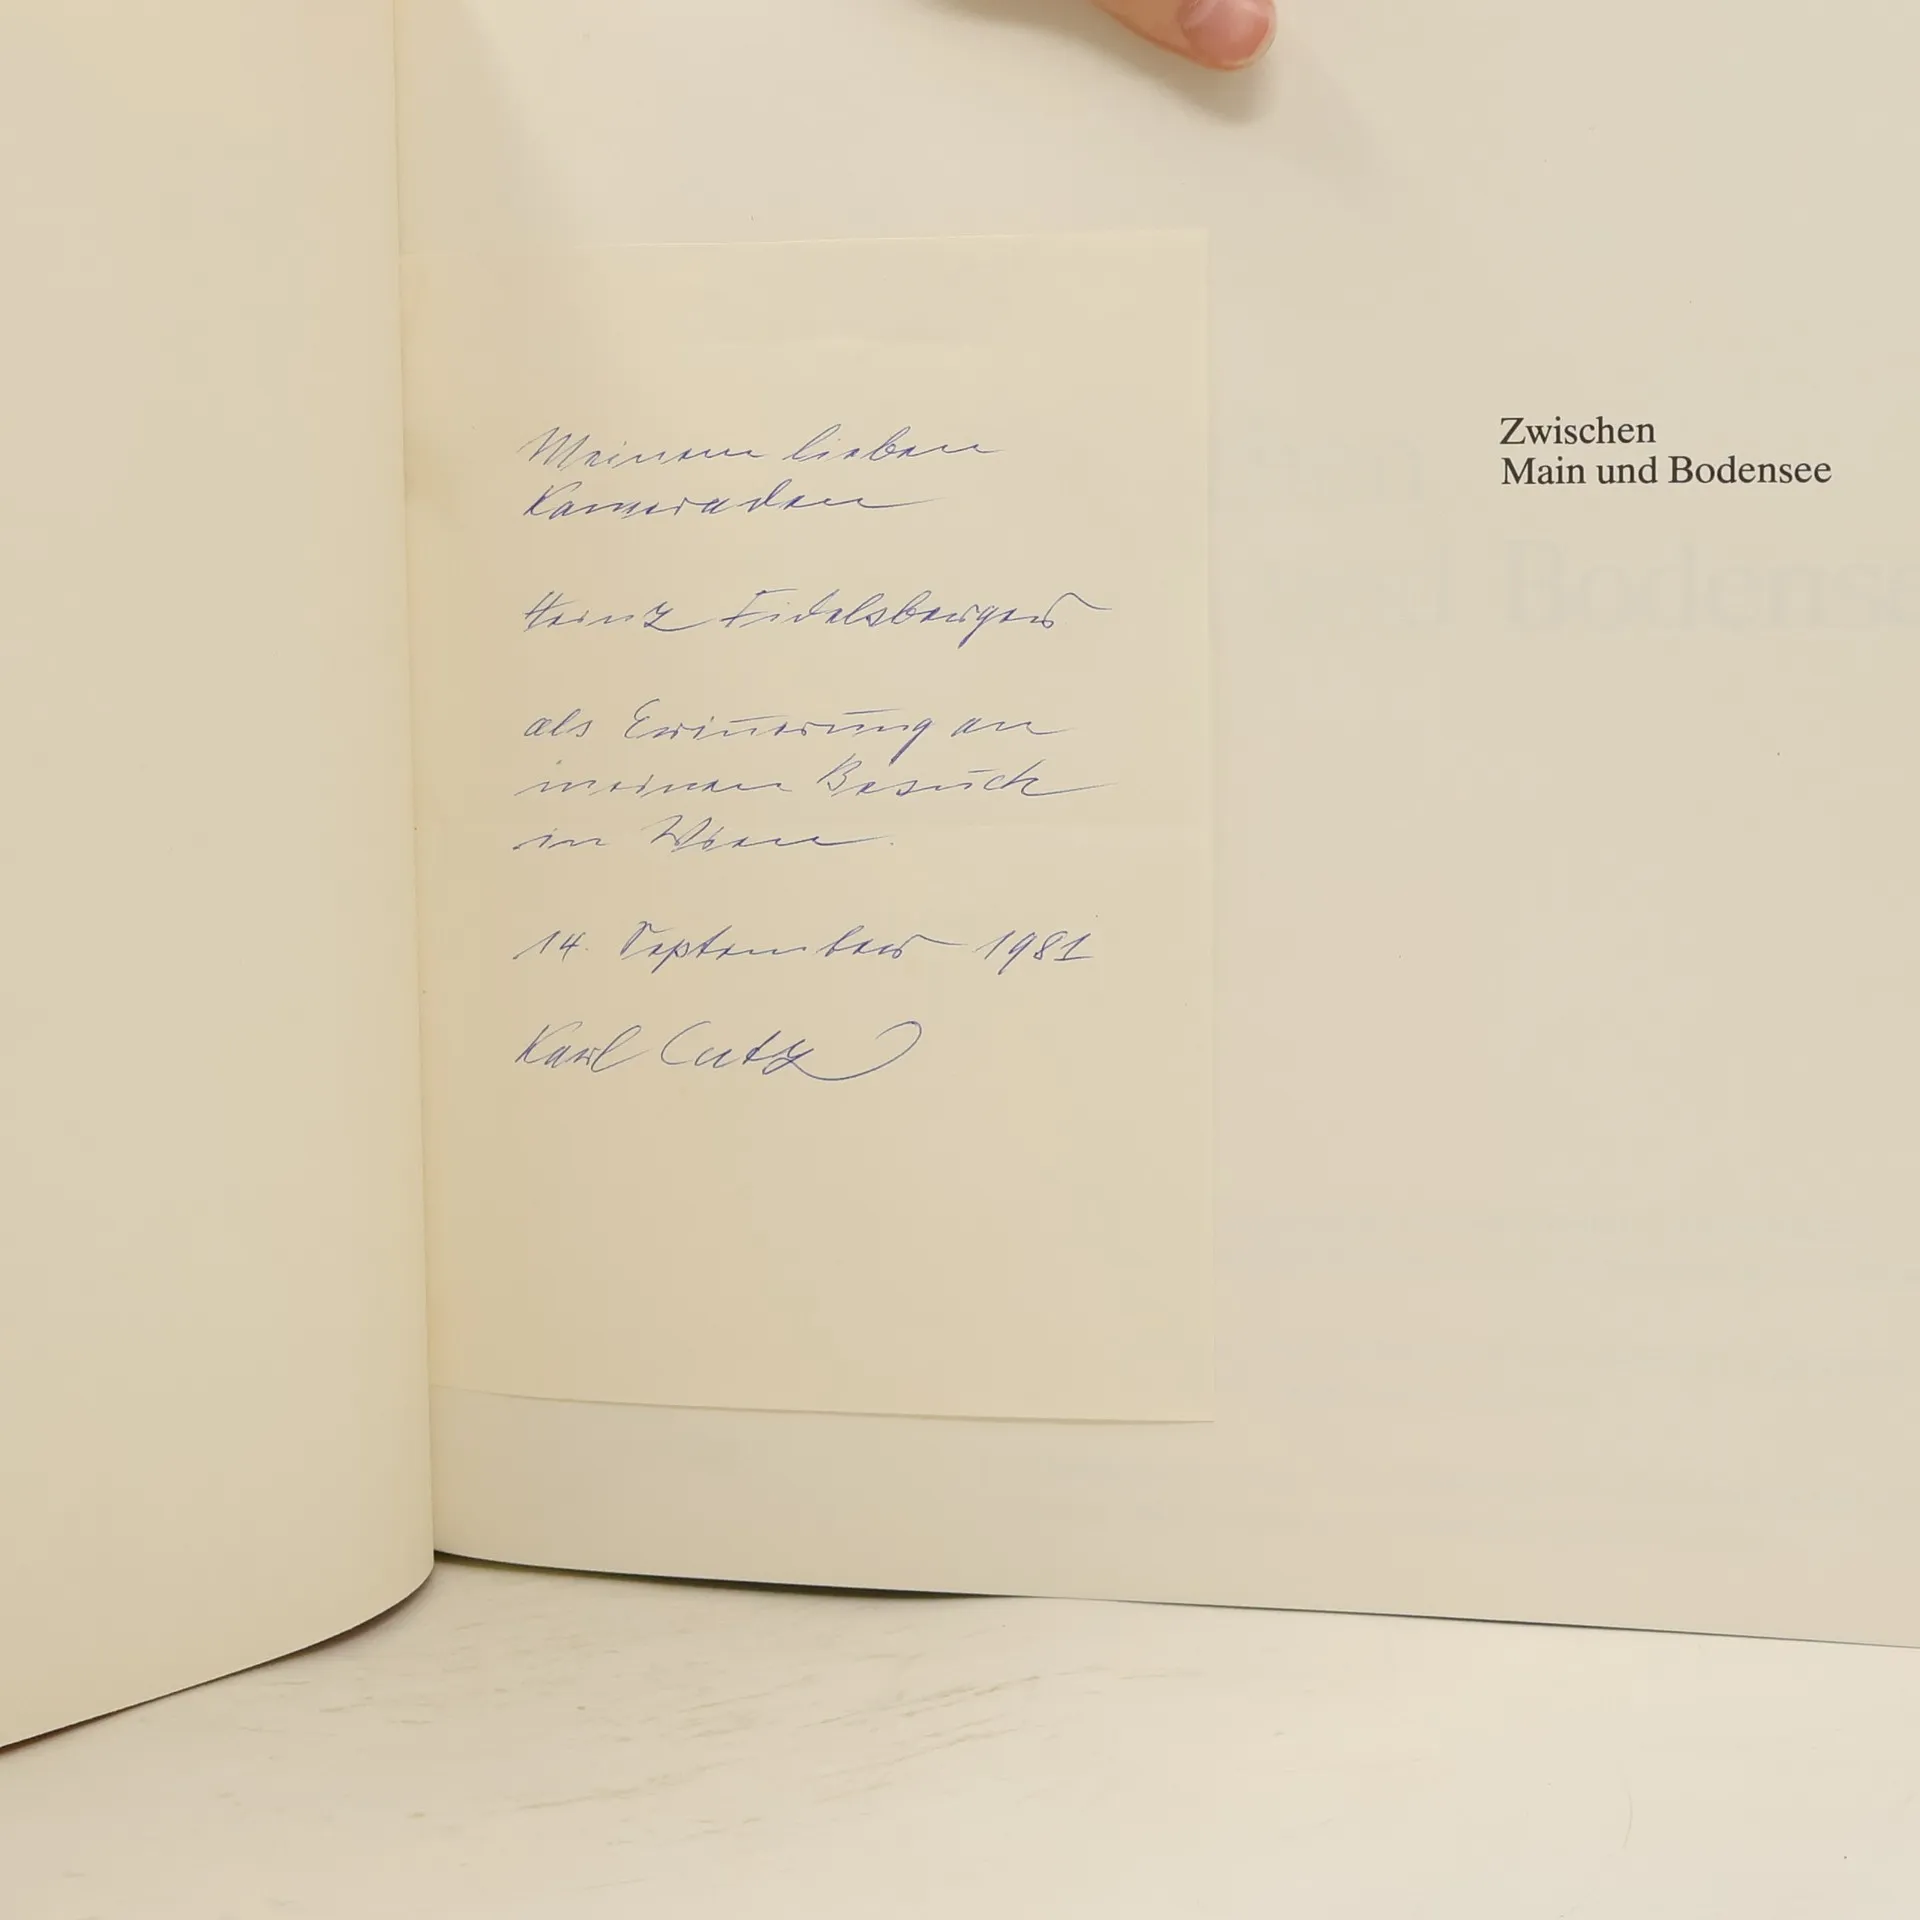 Meinem lieben
Kameraden
Heinz Fidelsberger
als Erinnerung an
meinen Besuch
in Wien.
14. September 1981
Karl
Zwischen
Main und Bodensee